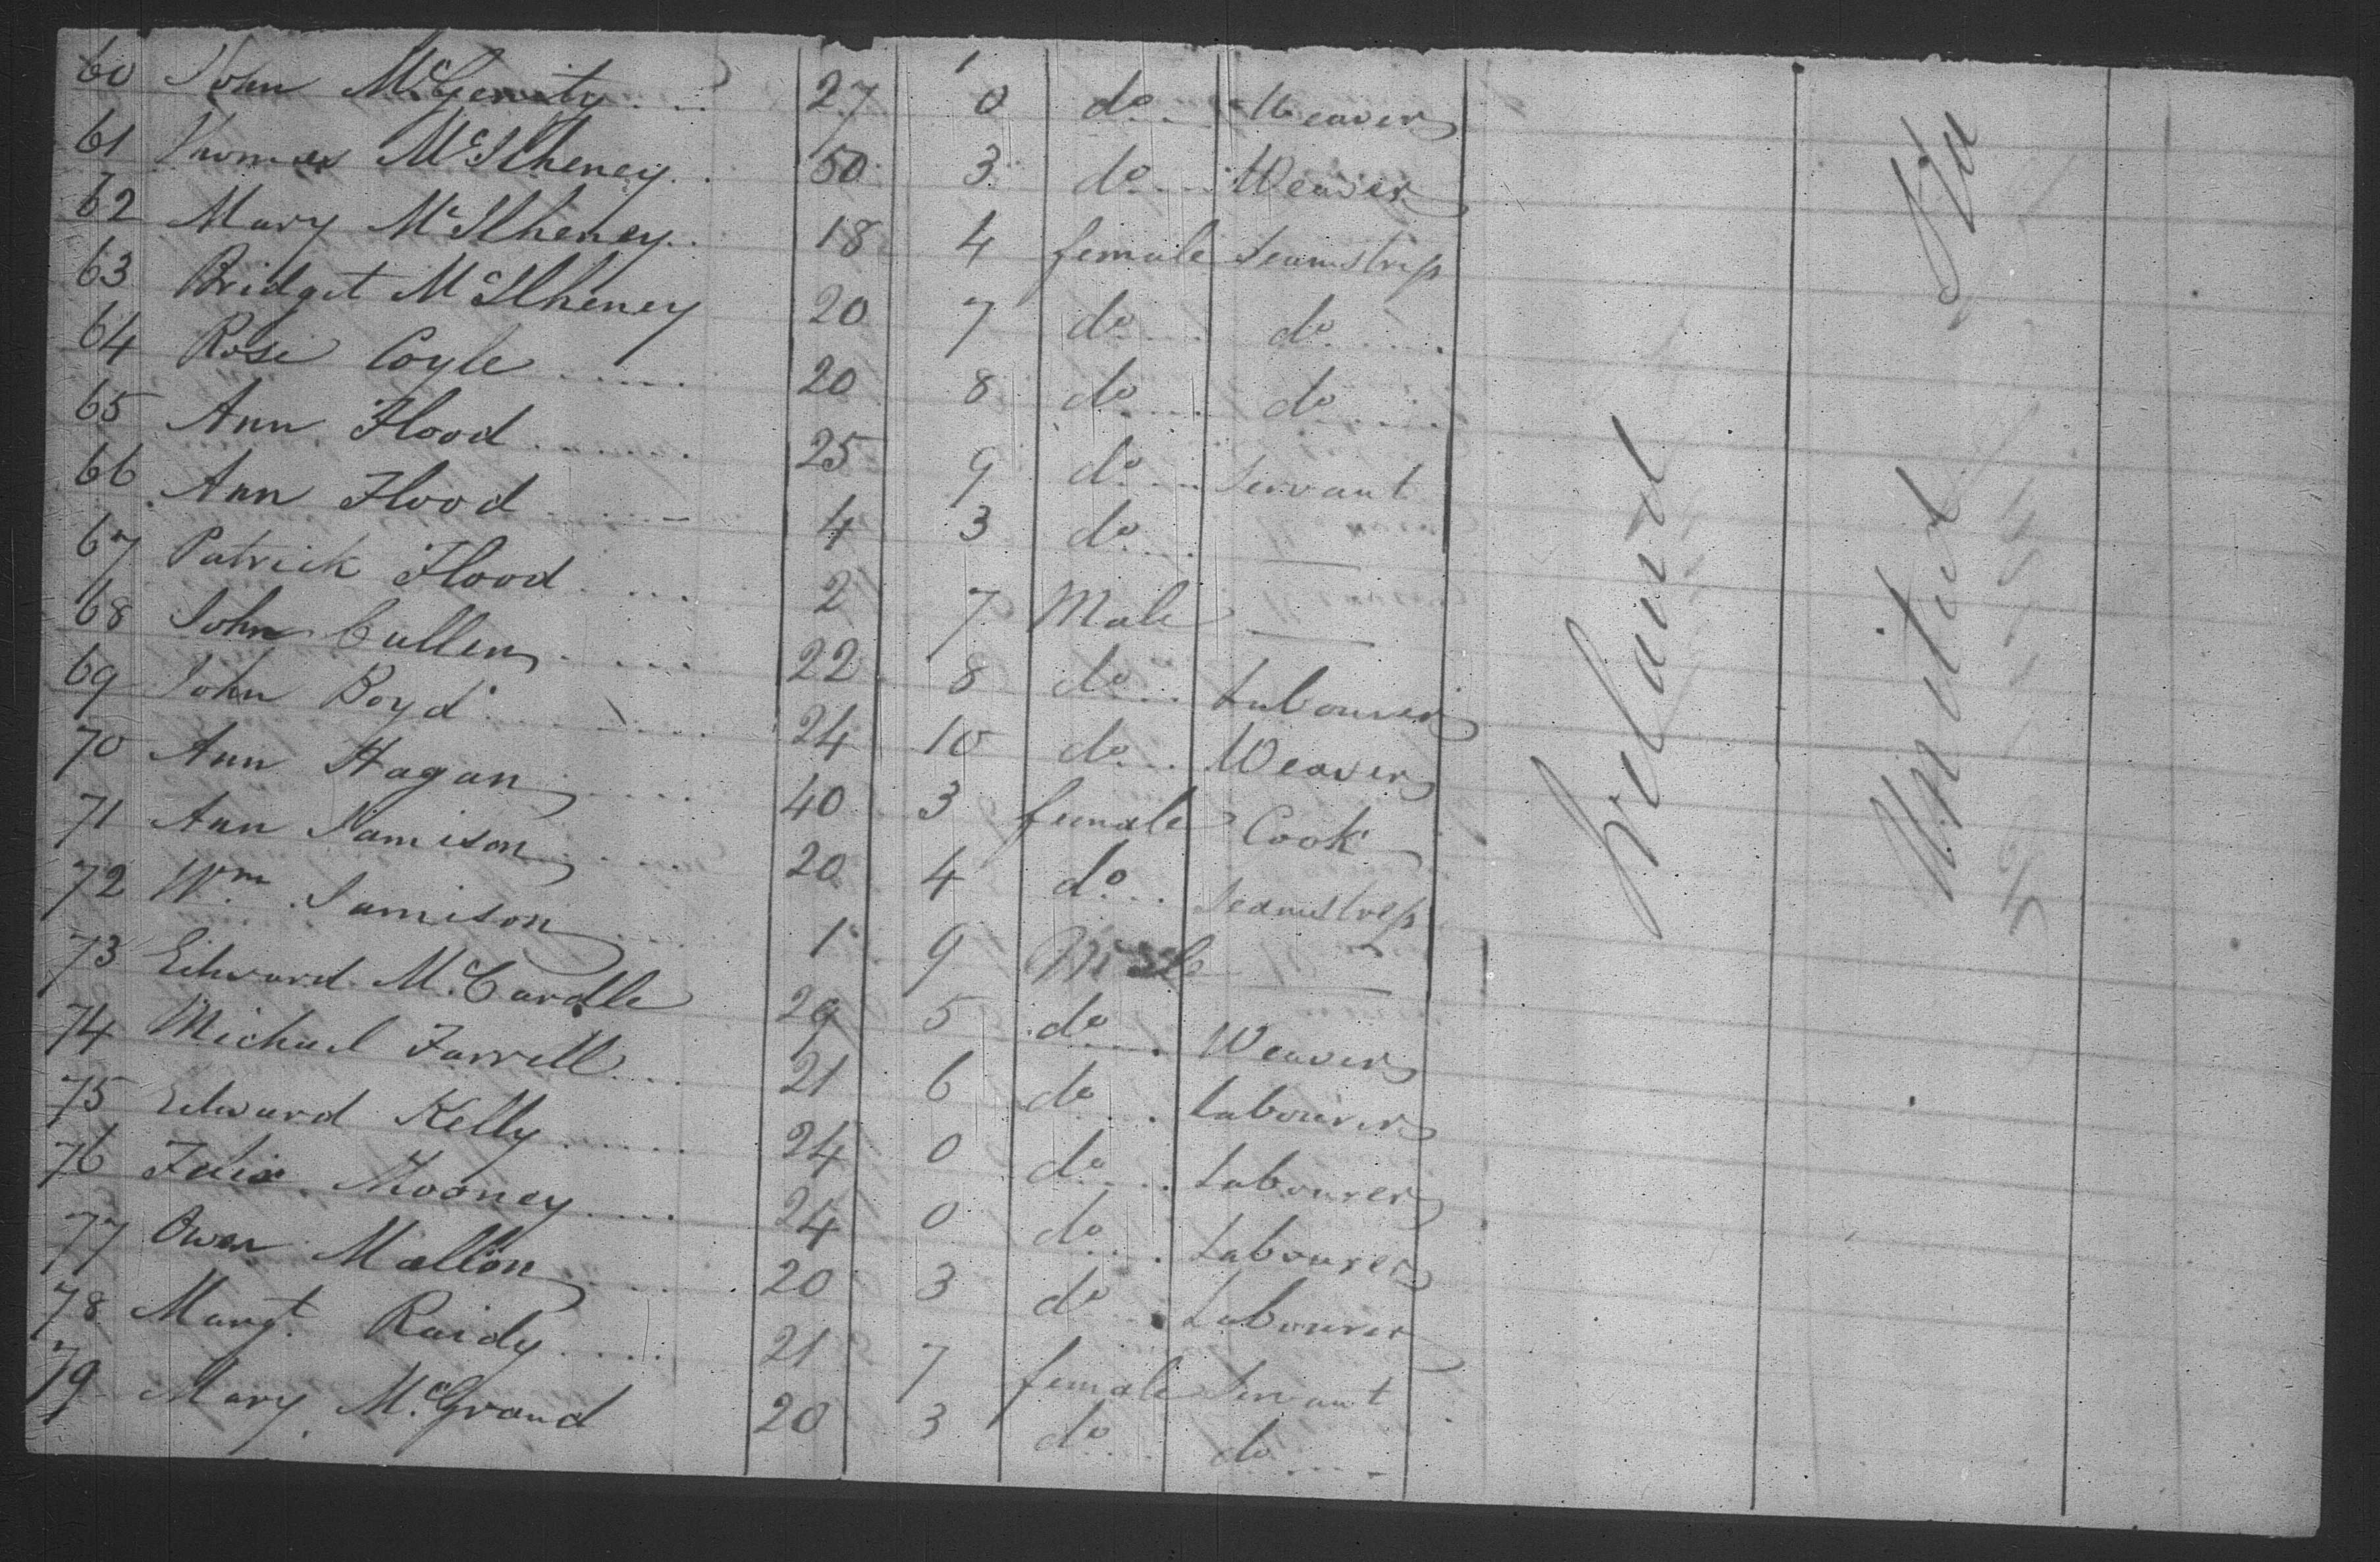 60 John McGenity 27 0 do Weaver
61 Thomas McIlheney 50 3 do Weaver
62 Mary McIlheney 18 4 female Seamstress
63 Bridget McIlheney 20 7 do do
64 Rose Coyle 20 8 do do
65 Ann Flood 25 9 do Servant
66 Ann Flood 4 3 do —
67 Patrick Flood 2 7 Male —
68 John Cullen 22 8 do Labourer
69 John Boyd 24 10 do Weaver
70 Ann Hagan 40 3 female Cook
71 Ann Jamison 20 4 do Seamstress
72 Wm Jamison 1 9 Male —
73 Edward McCardle 29 5 do Weaver
74 Michael Farrell 21 6 do Labourer
75 Edward Kelly 24 0 do Labourer
76 Felix Mooney 24 0 do Labourer
77 Owen Mallon 20 3 do Labourer
78 Margt Raidy 21 7 female Servant
79 Mary McGrand 20 3 do do
Ireland
United